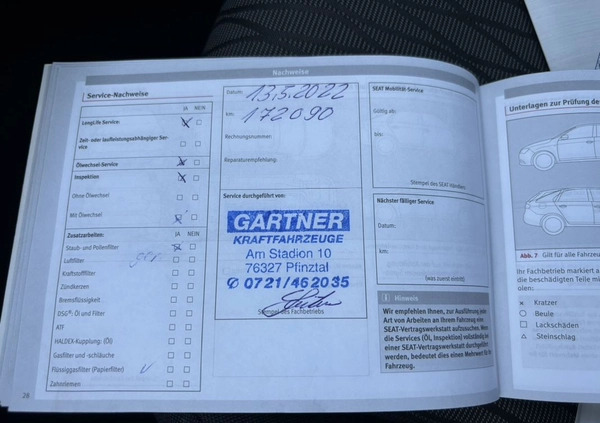 Nachweise
Service-Nachweise
JA NEIN
LongLife Service:
Zeit- oder laufleistungsabhängiger Ser-
vice
Ölwechsel-Service
Inspektion
Ohne Ölwechsel
Mit Ölwechsel
Zusatzarbeiten: JA NEIN
Staub- und Pollenfilter
Luftfilter
Kraftstofffilter
Zündkerzen
Bremsflüssigkeit
DSG®: Öl und Filter
ATF
HALDEX-Kupplung: (Öl)
Gasfilter und -schläuche
Flüssiggasfilter (Papierfilter)
Zahnriemen
28
Datum: 13.5.2022
km: 172090
Rechnungsnummer:
Reparaturempfehlung:
Service durchgeführt von:
GARTNER
KRAFTFAHRZEUGE
Am Stadion 10
76327 Pfinztal
✆ 0721/462035
Stempel des Fachbetriebs
SEAT Mobilität-Service
Gültig ab:
bis:
Stempel des SEAT Händlers
Nächster fälliger Service
Datum:
km:
(was zuerst eintritt)
i Hinweis
Wir empfehlen Ihnen, zur Ausführung jeder
Art von Arbeiten an Ihrem Fahrzeug eine
SEAT-Vertragswerkstatt aufzusuchen. Wenn
die Services (Öl, Inspektion) vollständig bei
einer SEAT-Vertragswerkstatt durchgeführt
werden, bedeutet dies einen Mehrwert für Ihr
Fahrzeug.
Unterlagen zur Prüfung de
Abb. 7 Gilt für alle Fahrzeu
Ihr Fachbetrieb markiert a
die beschädigten Teile mi
olen:
× Kratzer
○ Beule
□ Lackschäden
△ Steinschlag